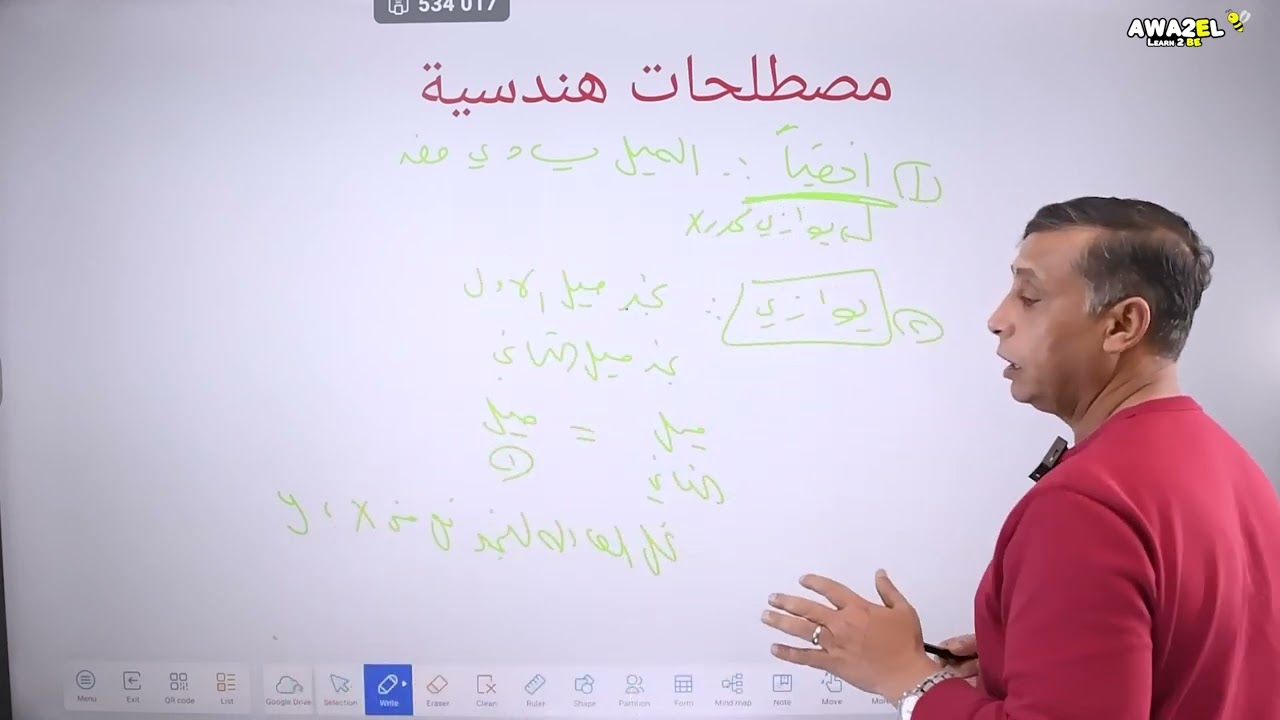 534 017
AWA2EL
LEARN 2 BE
مصطلحات هندسية
① افقياً ∴ الميل يساوي صفر
↳ يوازي محور x
② يوازي : نجد ميل الاول
نجد ميل الثاني
ميل = ميل
الثاني ①
نحل المعادلة لنجد قيم x ، y
Menu Exit QR code List Google Drive Selection Write Eraser Clean Ruler Shape Partition Form Mind map Note Move